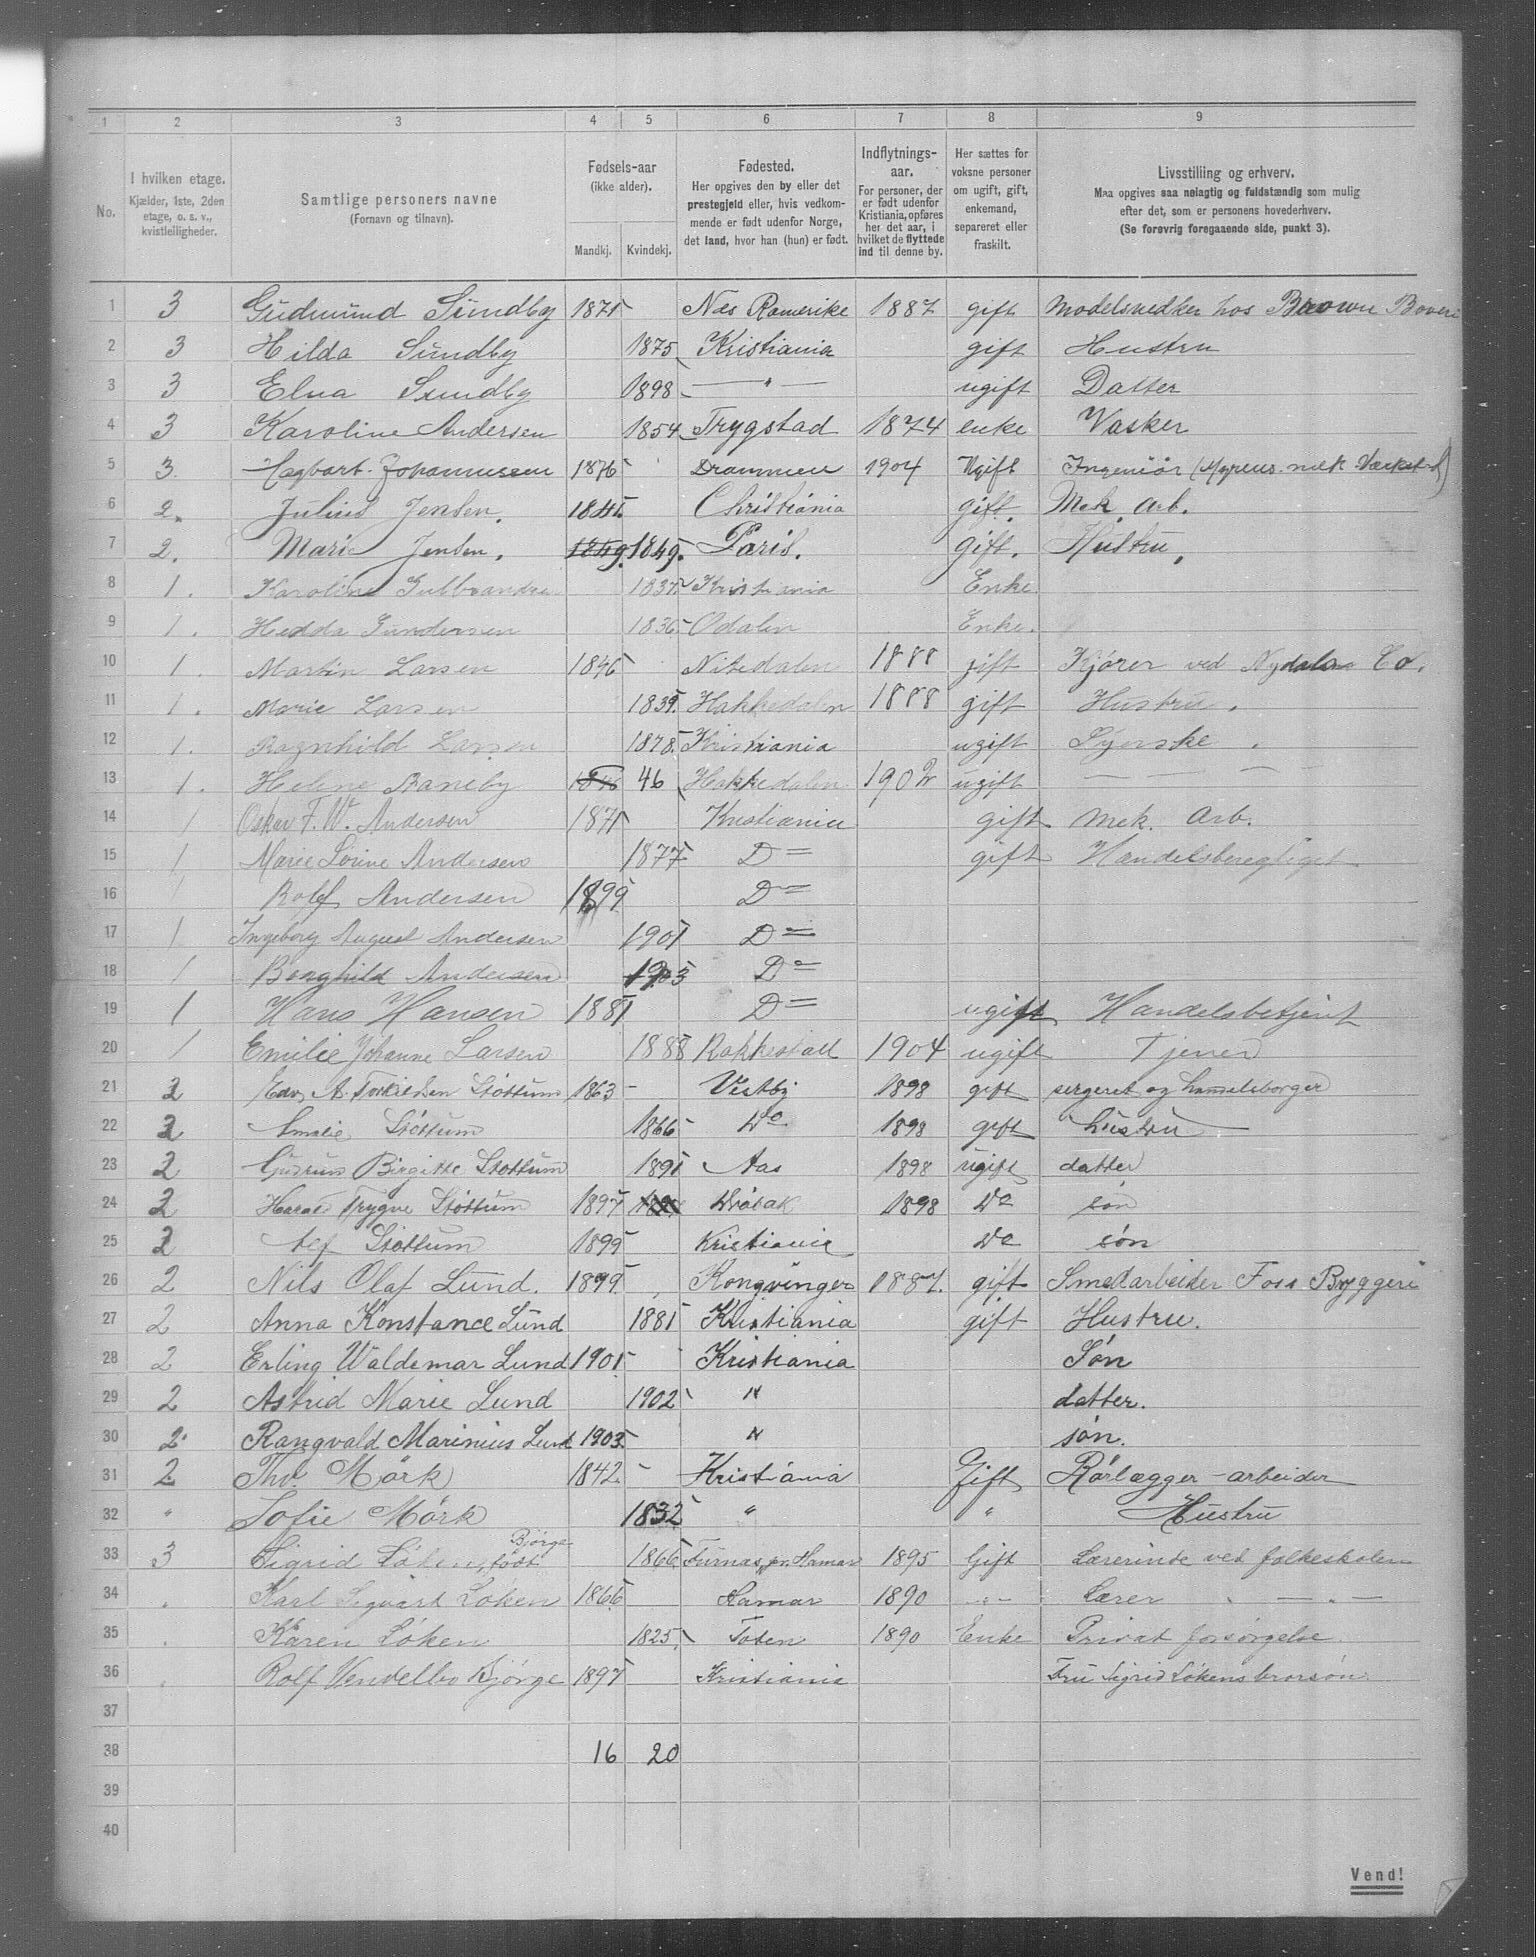 1 2 3 4 5 6 7 8 9
No.
I hvilken etage.
Kjælder, 1ste, 2den
etage, o. s. v.,
kvistleiligheder.
Samtlige personers navne
(Fornavn og tilnavn).
Fødsels-aar
(ikke alder).
Mandkj. Kvindekj.
Fødested.
Her opgives den by eller det
prestegjeld eller, hvis vedkom-
mende er født udenfor Norge,
det land, hvor han (hun) er født.
Indflytnings-
aar.
For personer, der
er født udenfor
Kristiania, opføres
her det aar, i
hvilket de flyttede
ind til denne by.
Her sættes for
voksne personer
om ugift, gift,
enkemand,
separeret eller
fraskilt.
Livsstilling og erhverv.
Maa opgives saa nøiagtig og fuldstændig som mulig
efter det, som er personens hovederhverv.
(Se forøvrig foregaaende side, punkt 3).
1 3 Gudmund Sundby 1871 Næs Romerike 1887 gift Modelsnedker hos Brown Boveri
2 3 Hilda Sundby 1875 Kristiania gift Hustru
3 3 Elna Sundby 1898 — " — ugift Datter
4 3 Karoline Andersen 1854 Trygstad 1874 enke Vasker
5 3 Hagbart Johannessen 1876 Drammen 1904 Ugift Ingeniör (Myrens mek Værksted)
6 2. Julius Jensen. 1841. Christiania gift. Mek. Arb.
7 2. Marie Jensen. 1849. 1849. Paris. Gift. Hustru.
8 1. Karoline Gulbrandsen 1837 Kristiania Enke
9 1. Hedda Gundersen 1836 Odalen Enke.
10 1. Martin Larsen 1846 Nitedalen 1888 gift Kjører ved Nydalen Co.
11 1. Marie Larsen 1839. Hakkedalen 1888 gift Hustru.
12 1. Ragnhild Larsen 1878 Kristiania ugift Syerske
13 1. Helene Raneby 46 Hakkedalen 1902 ugift — —
14 1 Oskar F. W. Andersen 1871 Kristiania gift Mek. Arb.
15 1 Marie Lovine Andersen 1877 D= gift Handelsberegtiget
16 1 Rolf Andersen 1899 D=
17 1 Ingeborg August Andersen 1901 D=
18 1 Borghild Andersen 1903 D=
19 1 Hans Hansen 1881 D= ugift Handelsbetjent
20 1 Emilie Johanne Larsen 1888 Rakkestad 1904 ugift Tjener
21 2 Edv. A. Torkildsen Støttum 1863 Vestby 1898 gift sergeret og handelsborger
22 2 Emalie Støttum 1866 Do 1898 gift hustru
23 2 Gudrun Birgitte Støttum 1891 Aas 1898 ugift datter
24 2 Harald Trygve Støttum 1897 Drøbak 1898 Do søn
25 2 Alf Støttum 1899 Kristiania Do søn
26 2 Nils Olaf Lund. 1899 Kongvinger 1887. gift Smedarbeider Foss Bryggeri
27 2 Anna Konstance Lund 1881 Kristiania gift Hustru.
28 2 Erling Waldemar Lund 1901 Kristiania Søn
29 2 Astrid Marie Lund 1902 " datter.
30 2. Rangvald Marinius Lund 1903. " søn.
31 2. Thv. Mörk 1842. Kristiania Gift Rørlægger-arbeider
32 " Sofie Mörk 1832 " " Hustru
33 3 Sigrid Löken, født Bjørge 1866 Furnæs, pr. Hamar 1895 Gift Lærerinde ved folkeskolen
34 " Karl Sigvart Løken 1866 Hamar 1890 — " — Lærer " — " —
35 " Karen Löken 1825 Toten 1890 Enke Privat forsørgelse
36 " Rolf Vendelbo Bjørge 1897 Kristiania Fru Sigrid Løkens brorsøn
37
38 16 20
39
40
Vend!